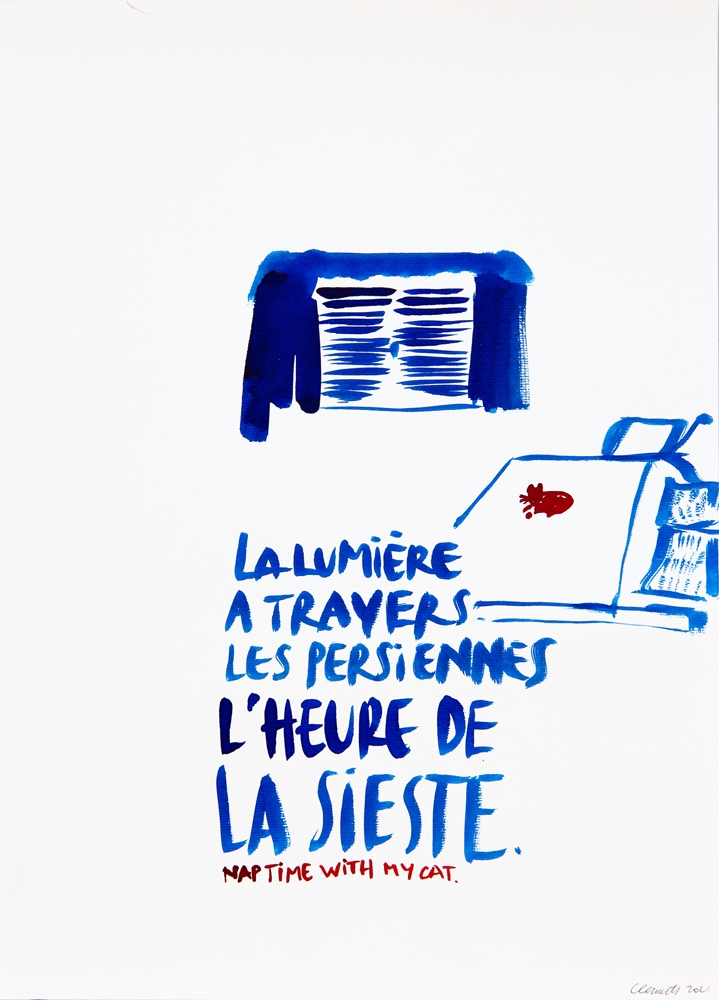 LA LUMIÈRE
A TRAVERS
LES PERSIENNES
L'HEURE DE
LA SIESTE.
NAP TIME WITH MY CAT.